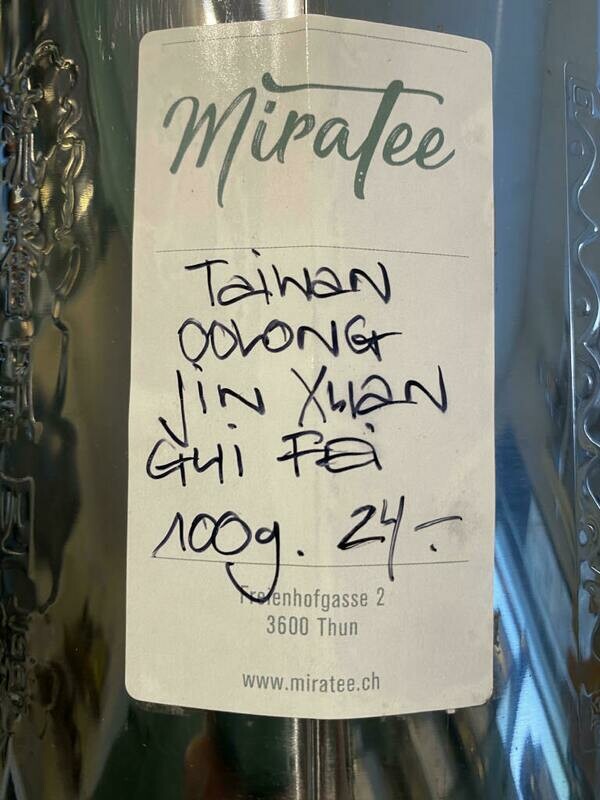 MiraTee
Taiwan
OOLONG
Jin Xuan
Gui Fei
100g. 24.-
Freienhofgasse 2
3600 Thun
www.miratee.ch